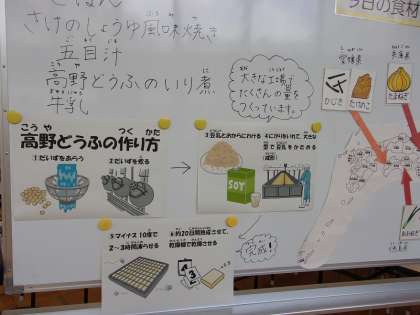 ごはん
さけのしょうゆ風味焼き
五目汁
高野どうふのいり煮
牛乳
大きな工場で
たくさんの量を
つくっています。
今日の食材
愛媛県
兵庫県
ひじき
たけのこ
たまねぎ
こうや つく かた
高野どうふの作り方
①だいずをあらう
②だいずを煮る
③豆乳とおからにわける
④にがりをいれて、大きな
型で豆乳をかためる
(成形)
SOY
⑤マイナス10度で
2～3時間凍らせる
⑥約20日間熟成させて、
乾燥機で乾燥させる
完成!